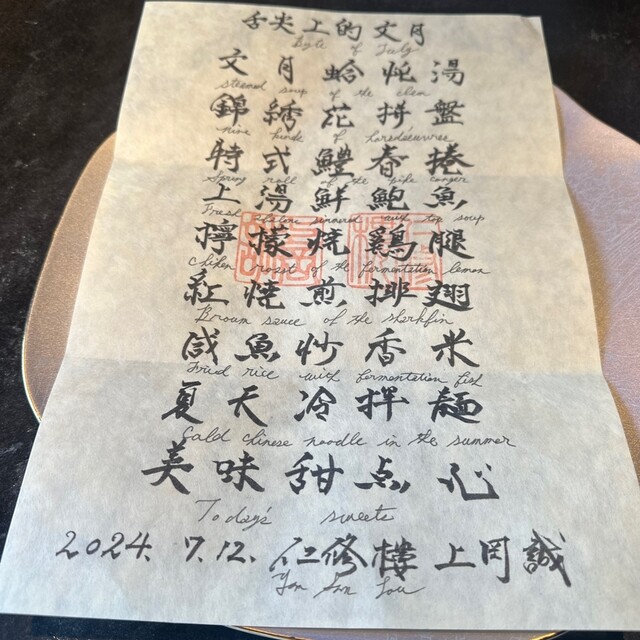 舌尖上的文月
Byte of July
文月蛤炖湯
steamed soup of the clam
錦綉花拼盤
nine kinds of
特式鱧春捲
Spring roll of the pike conger
上湯鮮鮑魚
Fresh abalone simmered with top soup
檸檬焼鷄腿
Chiken roast of the fermentation lemon
紅焼煎排翅
Broun sauce of the sharkfin
咸魚炒香米
Fried rice with fermentation fish
夏天冷拌麺
Cald chinese noodle in the summer
美味甜点心
Today's sweets
2024. 7.12. 仁修樓 上岡誠